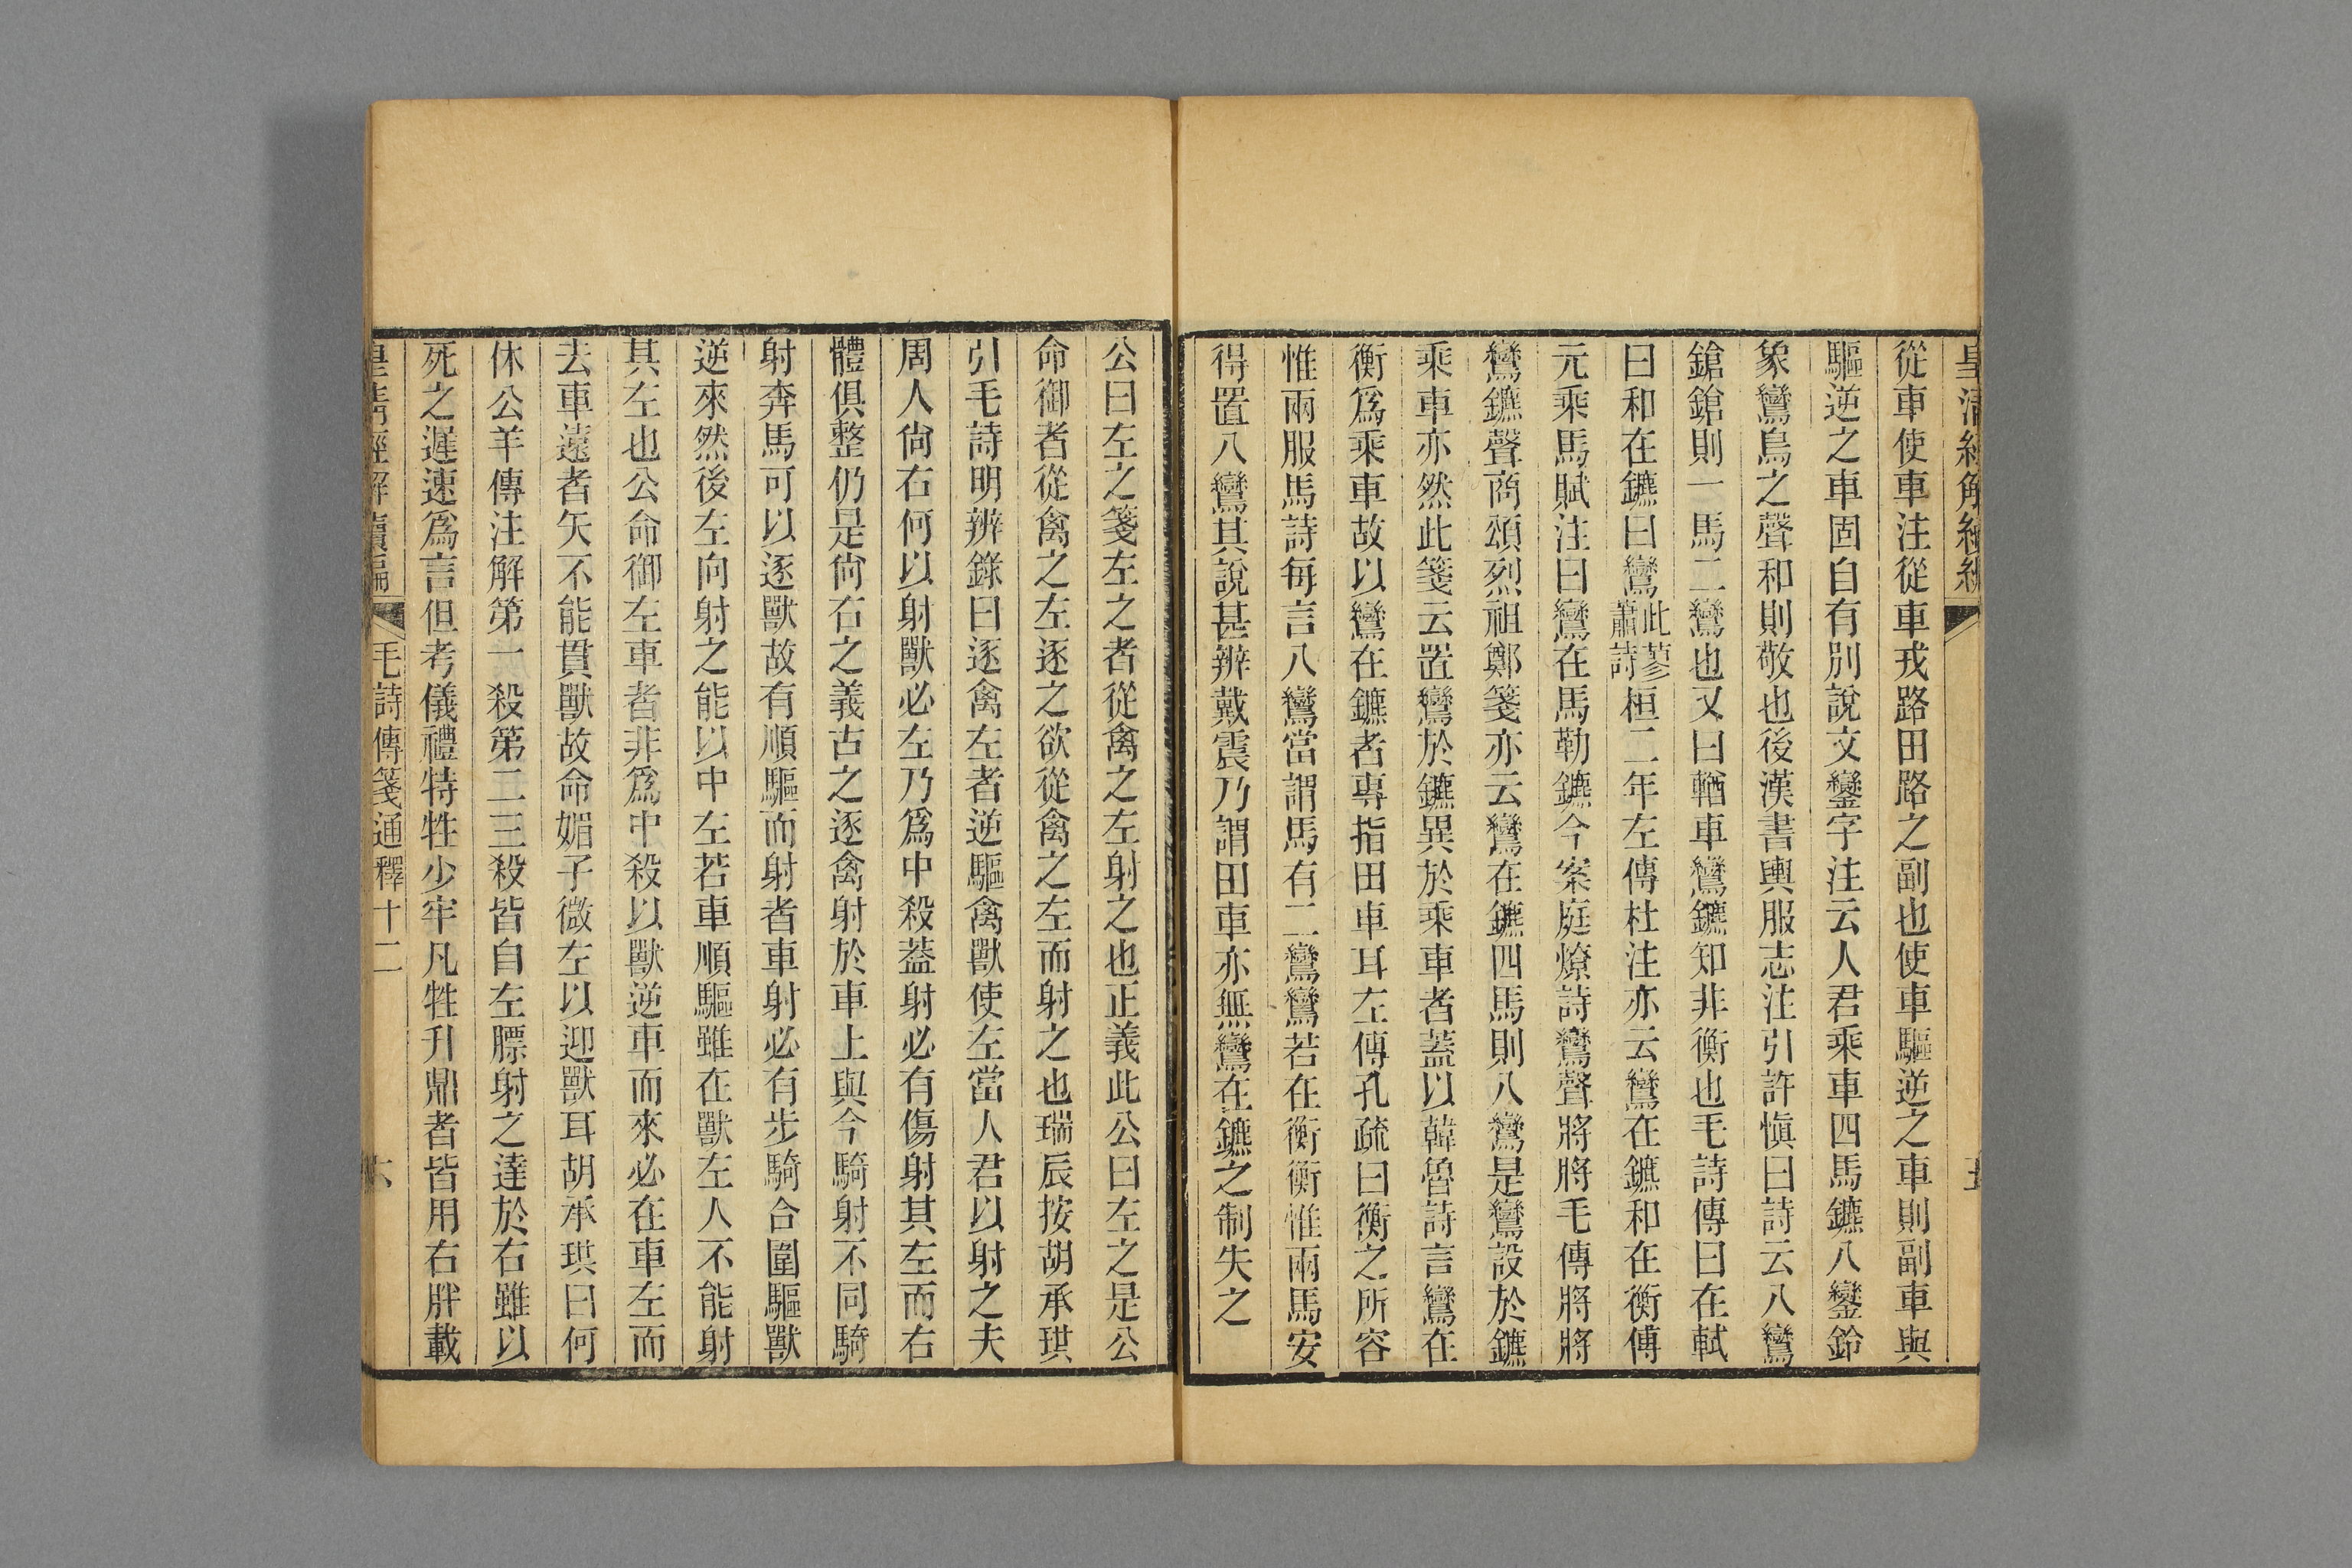 皇清經解續編
從車使車注從車戎路田路之副也使車驅逆之車則副車與
驅逆之車固自有別說文鑾字注云人君乘車四馬鑣八鑾鈴
象鸞鳥之聲和則敬也後漢書輿服志注引許愼曰詩云八鸞
鎗鎗則一馬二鸞也又曰輶車鸞鑣知非衡也毛詩傳曰在軾
曰和在鑣曰鸞此蓼蕭詩桓二年左傳杜注亦云鸞在鑣和在衡傅
元乘馬賦注曰鸞在馬勒鑣今案庭燎詩鸞聲將將毛傳將將
鸞鑣聲商頌烈祖鄭箋亦云鸞在鑣四馬則八鸞是鸞設於鑣
乘車亦然此箋云置鸞於鑣異於乘車者蓋以韓魯詩言鸞在
衡爲乘車故以鸞在鑣者專指田車耳左傳孔疏曰衡之所容
惟兩服馬詩每言八鸞當謂馬有二鸞鸞若在衡衡惟兩馬安
得置八鸞其說甚辨戴震乃謂田車亦無鸞在鑣之制失之
公曰左之箋左之者從禽之左射之也正義此公曰左之是公
命御者從禽之左逐之欲從禽之左而射之也瑞辰按胡承珙
引毛詩明辨錄曰逐禽左者逆驅禽獸使左當人君以射之夫
周人尙右何以射獸必左乃爲中殺蓋射必有傷射其左而右
體俱整仍是尙右之義古之逐禽射於車上與今騎射不同騎
射奔馬可以逐獸故有順驅而射者車射必有步騎合圍驅獸
逆來然後左向射之能以中左若車順驅雖在獸左人不能射
其左也公命御左車者非爲中殺以獸逆車而來必在車左而
去車遠者矢不能貫獸故命媚子微左以迎獸耳胡承珙曰何
休公羊傳注解第一殺第二三殺皆自左膘射之達於右雖以
死之遲速爲言但考儀禮特牲少牢凡牲升鼎者皆用右胖載
皇清經解續編 毛詩傳箋通釋十二 六